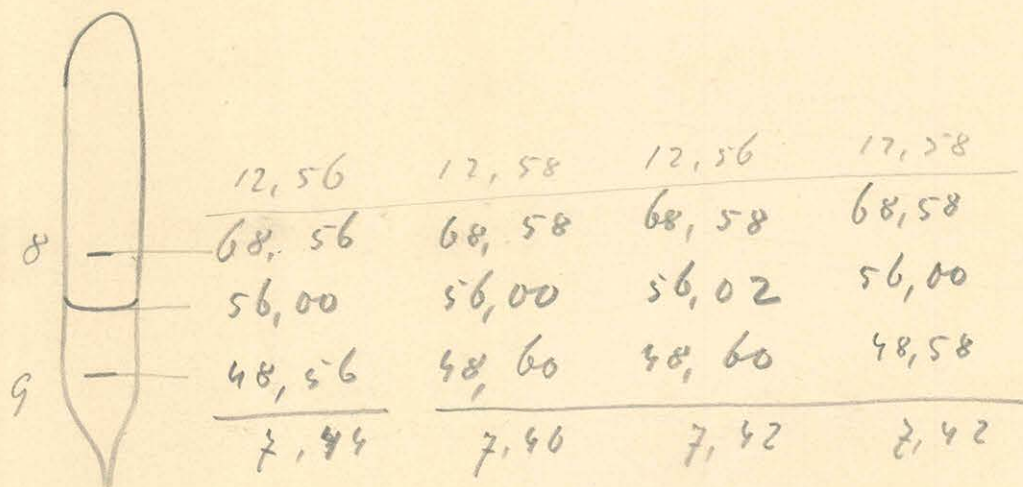 12,56 12,58 12,56 12,58
8 68,56 68,58 68,58 68,58
56,00 56,00 56,02 56,00
9 48,56 48,60 48,60 48,58
7,44 7,40 7,42 7,42